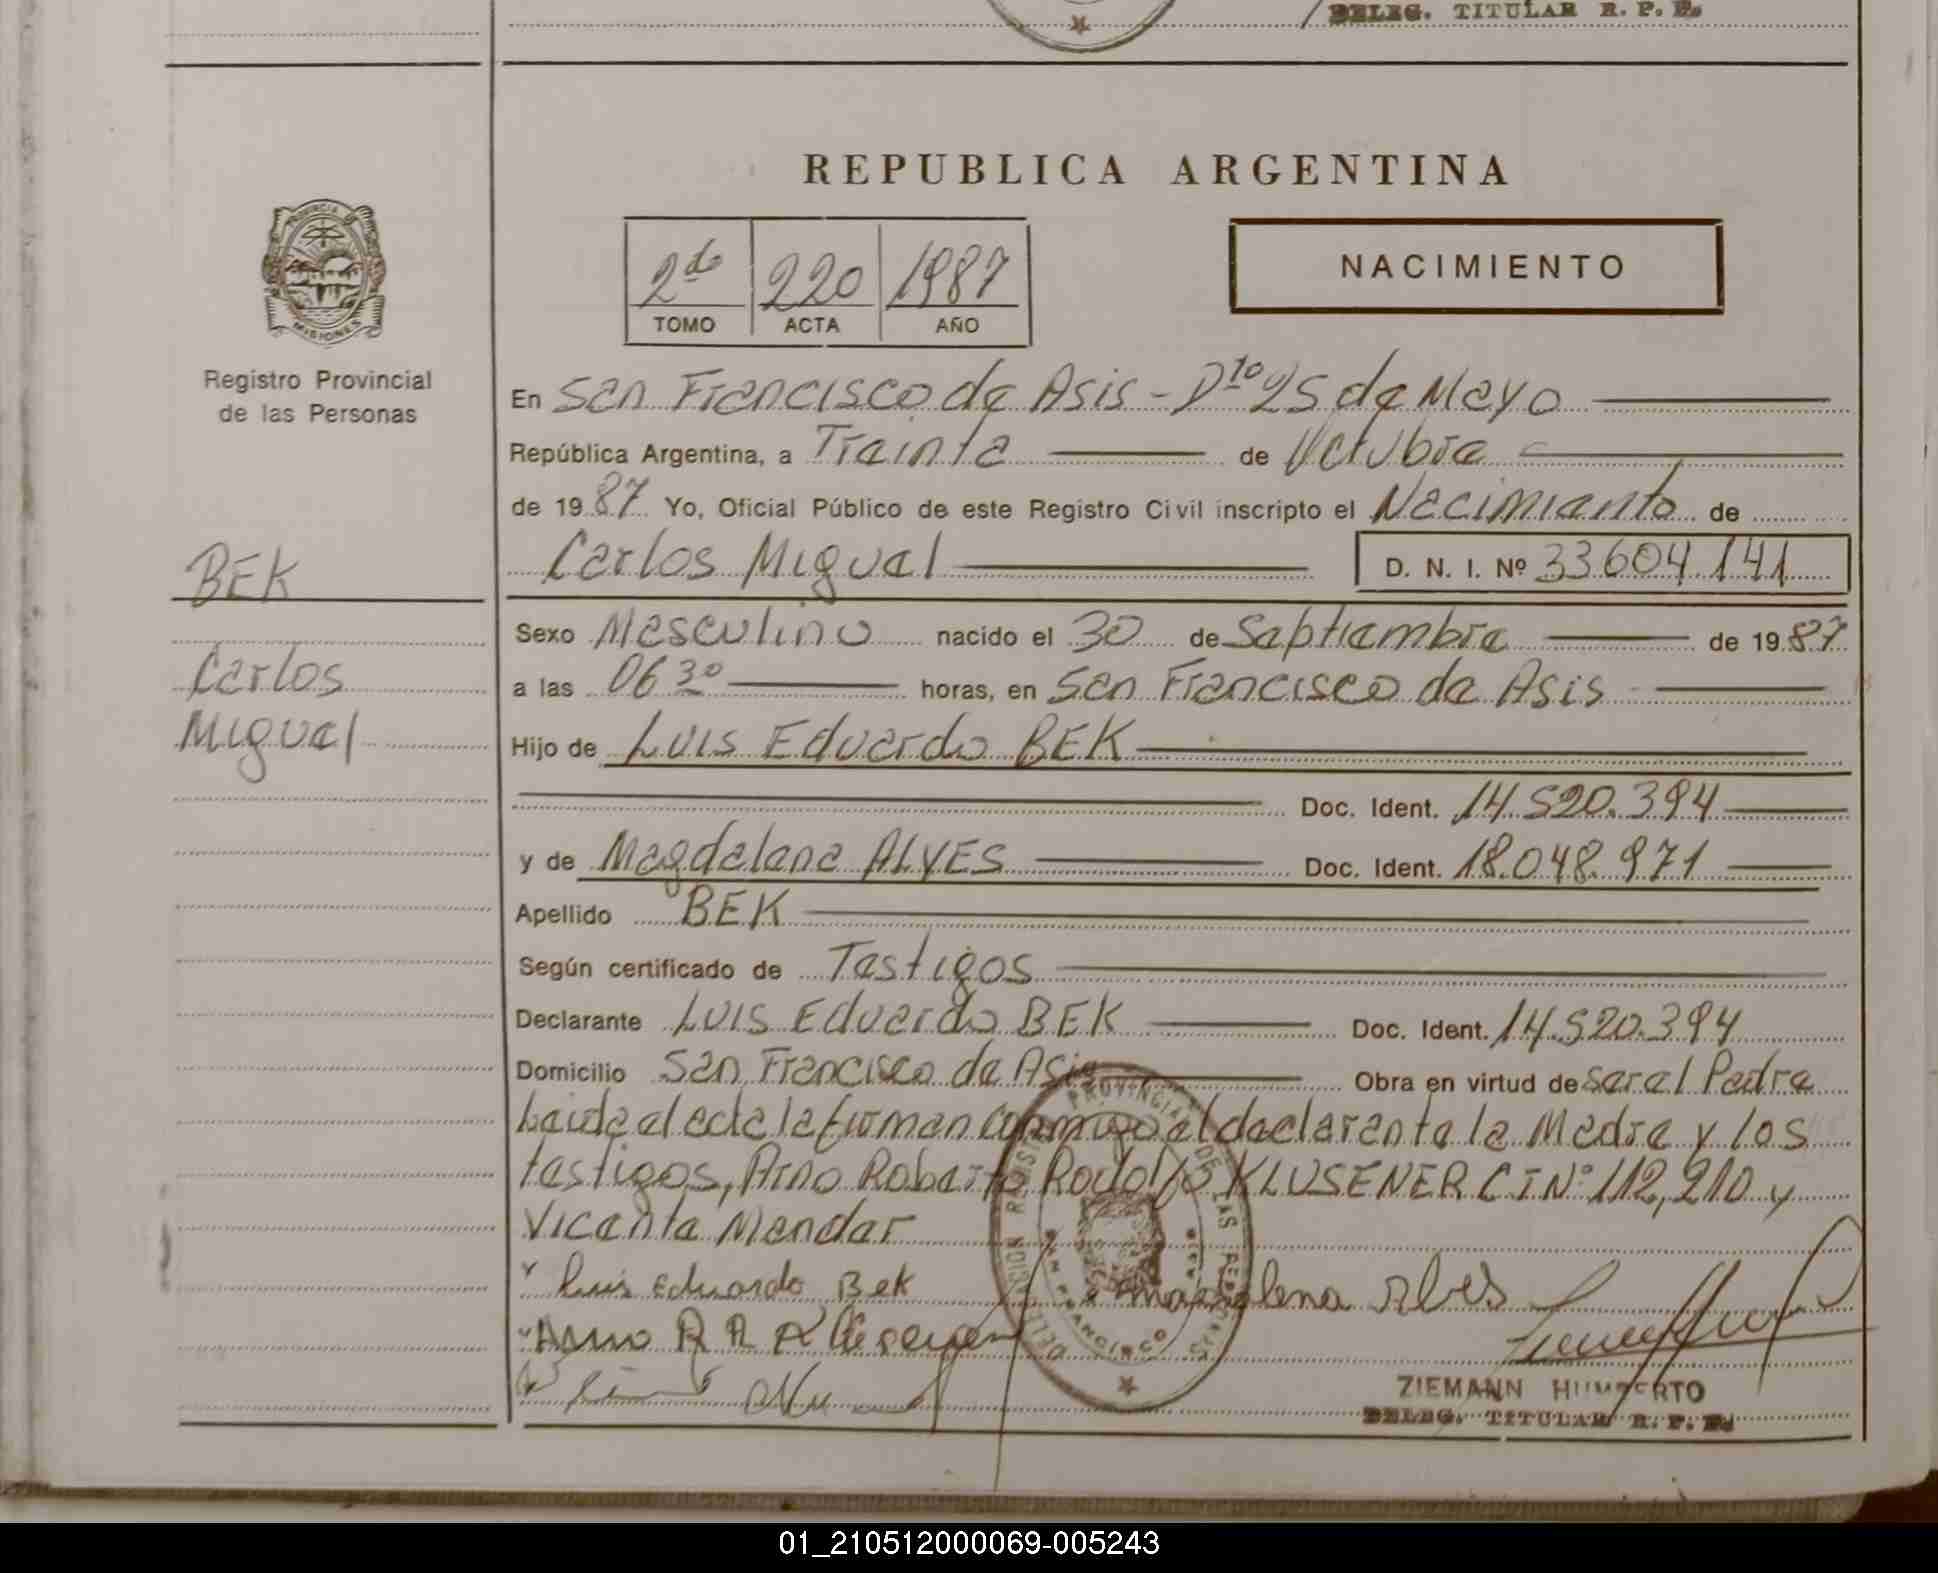 DELEG. TITULAR R. P. P.
REPUBLICA ARGENTINA
PROVINCIA
MISIONES
2do 220 1987
TOMO ACTA AÑO
NACIMIENTO
Registro Provincial
de las Personas
BEK
Carlos
Miguel
En San Francisco de Asis - Dto 25 de Mayo
República Argentina, a Treinta de Octubre
de 1987 Yo, Oficial Público de este Registro Civil inscripto el Nacimiento de
Carlos Miguel D. N. I. Nº 33.604.141
Sexo Masculino nacido el 30 de Septiembre de 1987
a las 06 30 horas, en San Francisco de Asis
Hijo de Luis Eduardo BEK
Doc. Ident. 14.520.394
y de Magdalena ALVES Doc. Ident. 18.048.971
Apellido BEK
Según certificado de Testigos
Declarante Luis Eduardo BEK Doc. Ident. 14.520.394
Domicilio San Francisco de Asis Obra en virtud de ser el Padre
Leida el acta la firman conmigo el declarante la Madre y los
testigos, Arno Roberto Rodolfo KLUSENER CI Nº 112,210 y
Vicente Mendar
Luis Eduardo Bek Magdalena Alves
Arno R R Klusener
ZIEMANN HUMBERTO
DELEG. TITULAR R. P. P.
01_210512000069-005243